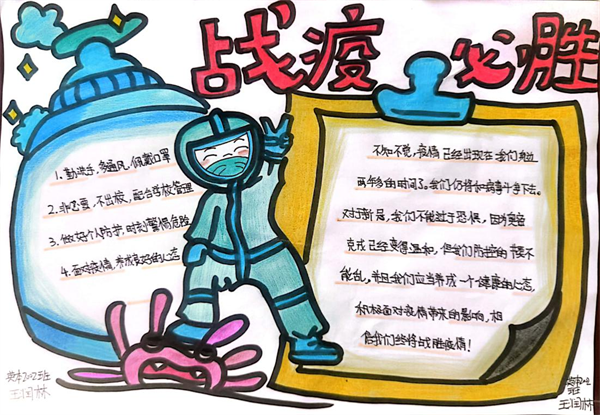 战疫必胜
1. 勤洗手,多通风,佩戴口罩
2. 非必要,不出校,配合学校管理
3. 做好个人防护,时刻警惕危险
4. 面对疫情,养成良好的心态
不知不觉,疫情已经出现在我们身边
两年多的时间了,我们仍将和病毒斗争下去。
对于新冠,我们不能过于恐惧,因为奥密
克戎已经变得温和,但我们防控的节奏不
能乱,并且我们应当养成一个健康的心态,
积极面对疫情带来的影响,相
信我们终将战胜疫情!
2002班
王国林
班
王国林